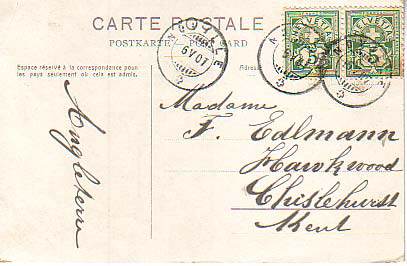 CARTE POSTALE
POSTKARTE CARD
Espace réservé à la correspondance pour
les pays seulement où cela est admis.
Adresse
6 V 07
HELVETIA
5
HELVETIA
5
Angleterre
Madame
F. Edlmann
Hawkwood
Chislehurst
Kent